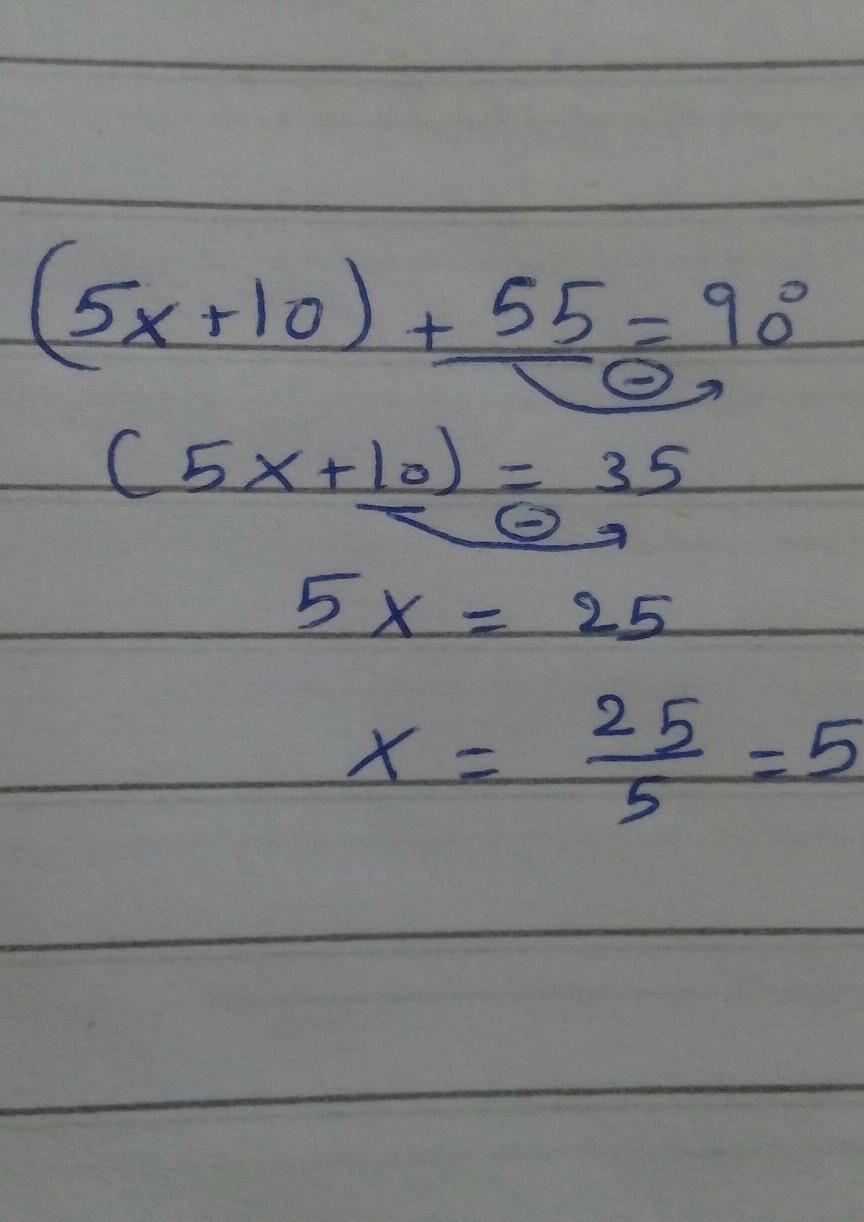 (5x+10) + 55 = 90°
⊖
(5x+10) = 35
⊖
5x = 25
x = 25/5 = 5